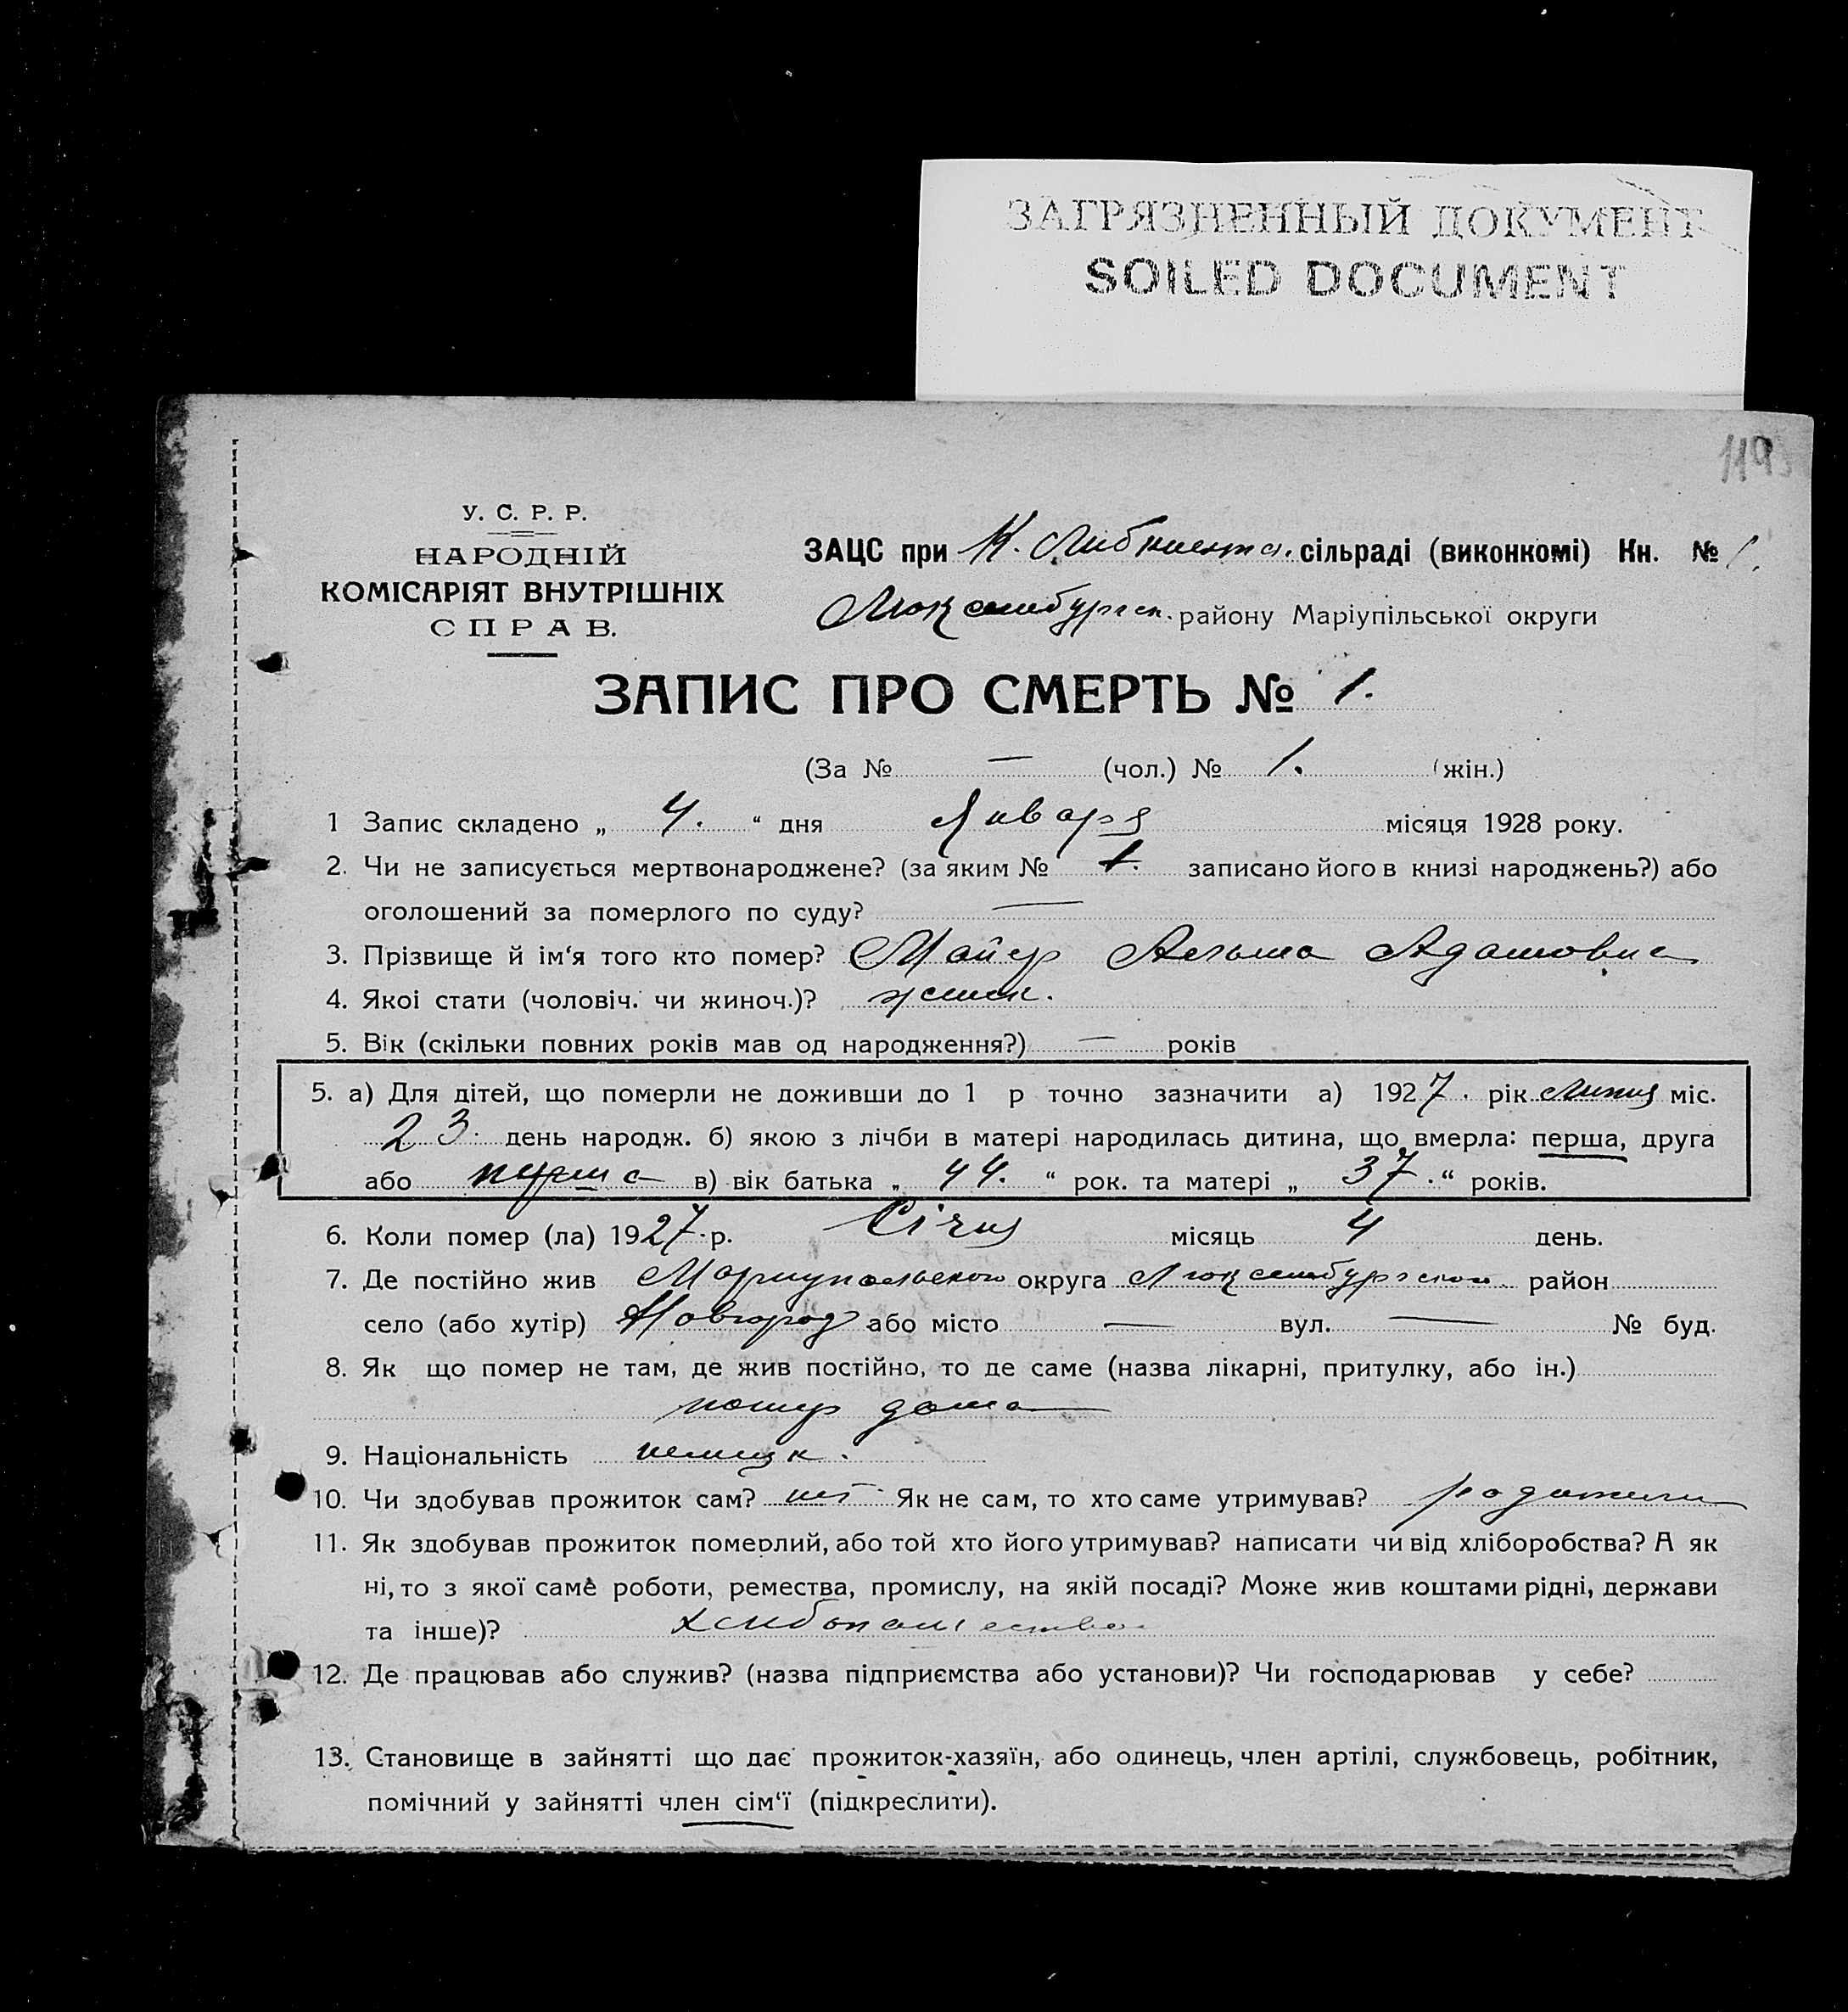 ЗАГРЯЗНЕННЫЙ ДОКУМЕНТ
SOILED DOCUMENT
1193
У. С. Р. Р.
НАРОДНІЙ
КОМІСАРІЯТ ВНУТРІШНІХ
СПРАВ.
ЗАЦС при К. Либкнехта. сільраді (виконкомі) Кн. № 1.
Люксембургск. району Маріупільської округи
ЗАПИС ПРО СМЕРТЬ № 1.
(За № — (чол.) № 1. (жін.)
1 Запис складено „ 4. “ дня Января місяця 1928 року.
2. Чи не записується мертвонароджене? (за яким № записано його в книзі народжень?) або
оголошений за померлого по суду? —
3. Прізвище й ім‘я того кто помер? Майер Альма Адамовна
4. Якоі стати (чоловіч. чи жиноч.)? женск.
5. Вік (скільки повних років мав од народження?) — років
5. а) Для дітей, що померли не доживши до 1 р точно зазначити а) 1927. рік Липня міс.
23. день народж. б) якою з лічби в матері народилась дитина, що вмерла: перша, друга
або перша в) вік батька „ 44. “ рок. та матері „ 37. “ років.
6. Коли помер (ла) 1927. р. Січня місяць 4 день.
7. Де постійно жив Мариупольского округа Люксембургского район
село (або хутір) Новгород або місто — вул. — № буд.
8. Як що помер не там, де жив постійно, то де саме (назва лікарні, притулку, або ін.)
помер дома
9. Національність немецк.
10. Чи здобував прожиток сам? нет Як не сам, то хто саме утримував? родители
11. Як здобував прожиток померлий, або той хто його утримував? написати чи від хліборобства? А як
ні, то з якої саме роботи, ремества, промислу, на якій посаді? Може жив коштами рідні, держави
та інше)? хлебопашество
12. Де працював або служив? (назва підприємства або установи)? Чи господарював у себе?
13. Становище в зайнятті що дає прожиток-хазяїн, або одинець, член артілі, службовець, робітник,
помічний у зайнятті член сім‘ї (підкреслити).